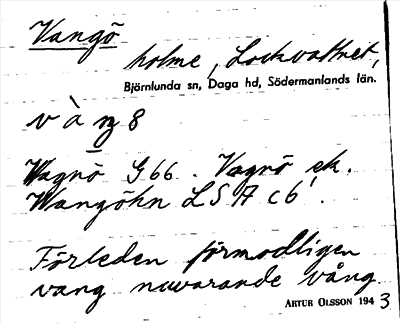 Vangö
holme, Lockvattnet,
Björnlunda sn, Daga hd, Södermanlands län.
Vagnö G66. Vagnö ek.
Wangöhn LSA c6.
Förleden förmodligen
vang nuvarande vång.
ARTUR OLSSON 1943